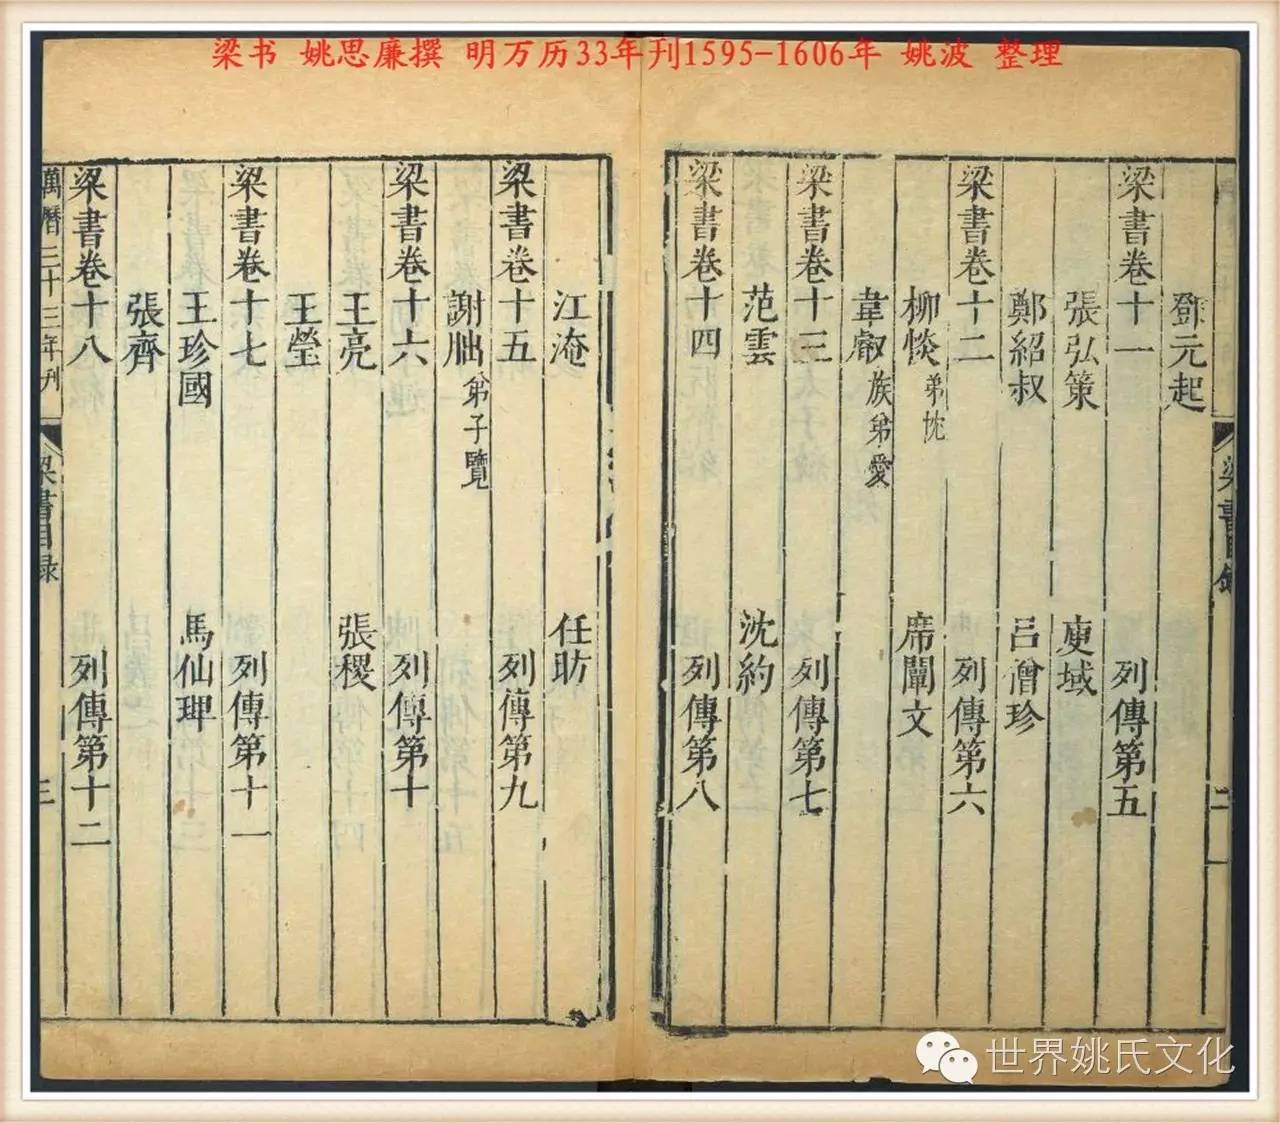 梁书 姚思廉撰 明万历33年刊1595-1606年 姚波 整理
梁書目録
二
鄧元起
梁書卷十一 列傳第五
張弘策 庾域
鄭紹叔 呂僧珍
梁書卷十二 列傳第六
柳惔弟忱 席闡文
韋叡族弟愛
梁書卷十三 列傳第七
范雲 沈約
梁書卷十四 列傳第八
江淹 任昉
梁書卷十五 列傳第九
謝朏弟子覽
梁書卷十六 列傳第十
王亮 張稷
王瑩
梁書卷十七 列傳第十一
王珍國 馬仙琕
張齊
梁書卷十八 列傳第十二
萬曆三十三年刊
梁書目録
三
世界姚氏文化